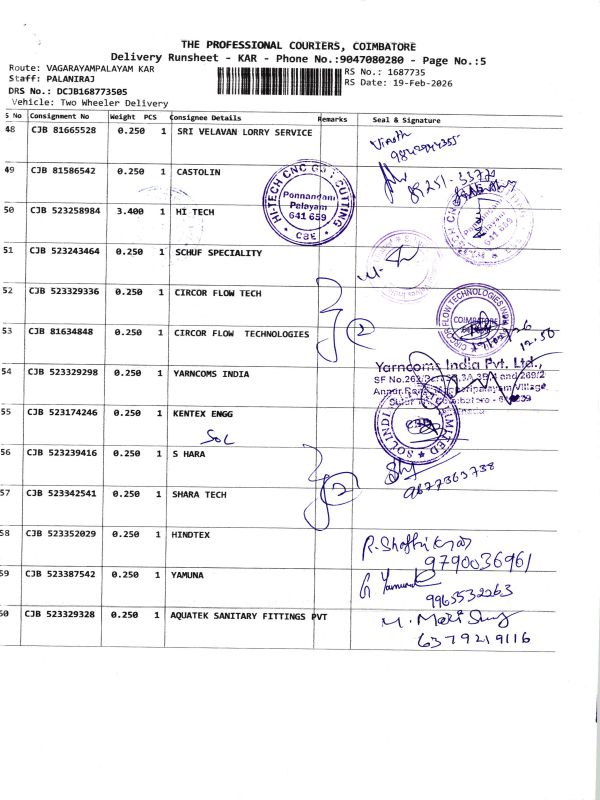 THE PROFESSIONAL COURIERS, COIMBATORE
Delivery Runsheet - KAR - Phone No.:9047080280 - Page No.:5
Route: VAGARAYAMPALAYAM KAR
Staff: PALANIRAJ
DRS No.: DCJB168773505
Vehicle: Two Wheeler Delivery
RS No.: 1687735
RS Date: 19-Feb-2026
S No Consignment No Weight PCS Consignee Details Remarks Seal & Signature
48 CJB 81665528 0.250 1 SRI VELAVAN LORRY SERVICE
49 CJB 81586542 0.250 1 CASTOLIN
50 CJB 523258984 3.400 1 HI TECH
HI-TECH CNC CUTTING
Ponnandam
Palayam
641 659
CBE
51 CJB 523243464 0.250 1 SCHUF SPECIALITY
52 CJB 523329336 0.250 1 CIRCOR FLOW TECH
2
CIRCOR FLOW TECHNOLOGIES INDIA
COIMBATORE
12.50
53 CJB 81634848 0.250 1 CIRCOR FLOW TECHNOLOGIES
54 CJB 523329298 0.250 1 YARNCOMS INDIA
Yarncoms India Pvt. Ltd.,
SF No.262
55 CJB 523174246 0.250 1 KENTEX ENGG
Sol
56 CJB 523239416 0.250 1 S HARA
2
9877363738
57 CJB 523342541 0.250 1 SHARA TECH
58 CJB 523352029 0.250 1 HINDTEX
9790036961
59 CJB 523387542 0.250 1 YAMUNA
9965532263
60 CJB 523329328 0.250 1 AQUATEK SANITARY FITTINGS PVT
6379219116